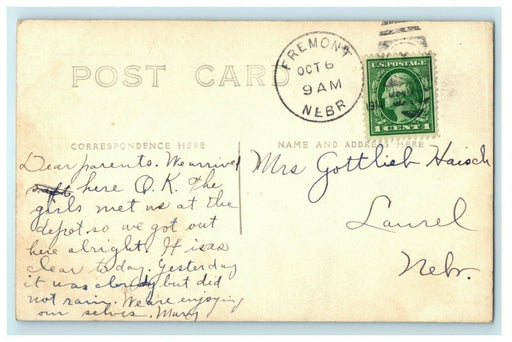 POST CARD
FREMONT
OCT 6
9 AM
NEBR
U.S. POSTAGE
1 CENT 1
CORRESPONDENCE HERE
NAME AND ADDRESS HERE
Dear parents. We arrived
here O.K. The
girls met us at the
depot so we got out
here alright. It is
clear today. Yesterday
it was cloudy but did
not rain. We are enjoying
our selves. Mary
Mrs Gottlieb Haisch
Laurel
Nebr.